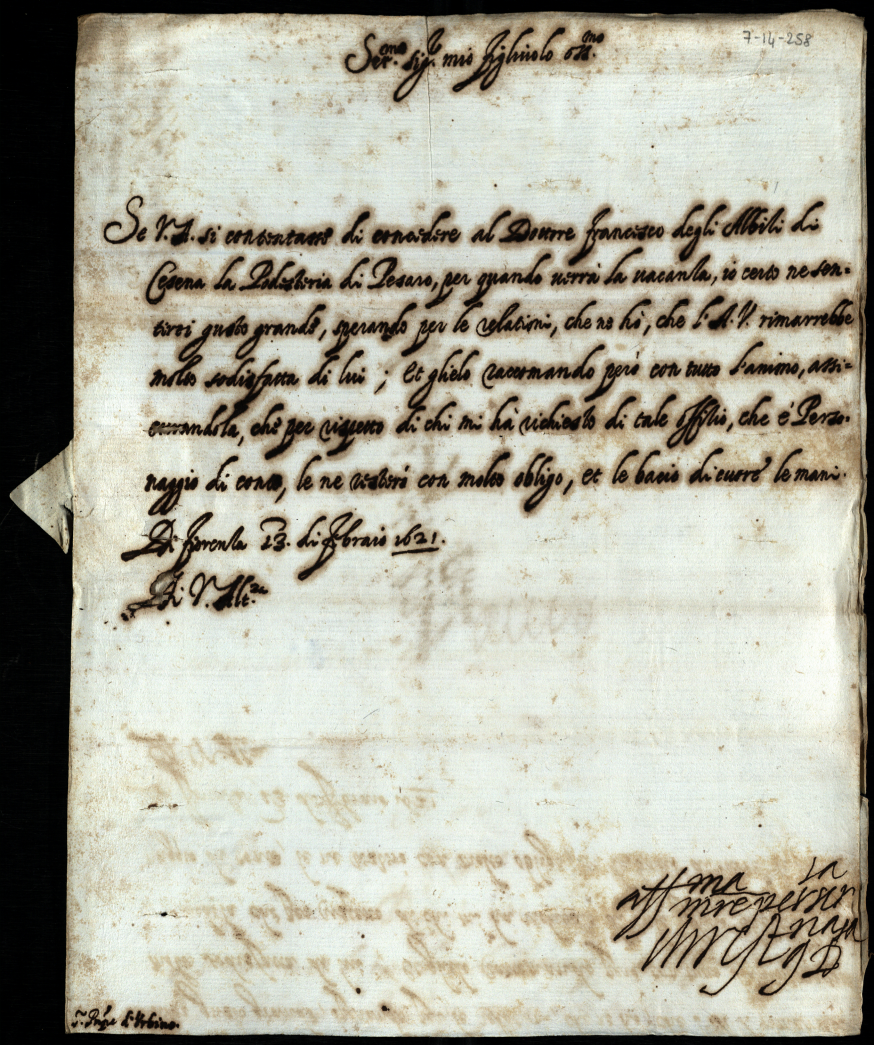 7-14-258
Ser.mo Sig.r mio figliuolo oss.mo
Se V.A. si contentasse di concedere al Dottore francesco degli Albili di
Cesena la Podesteria di Pesaro, per quando uerrà la uacanla, io certo ne sen=
tirei gusto grande, sperando per le relationi, che ne hò, che l'A.V. rimarrebbe
molto sodisfatta di lui; Et glielo raccomando però con tutto l'animo, assi=
curandola, che per rispetto di chi mi hà richiesto di tale offitio, che è Perso=
naggio di conto, le ne resterò con molto obligo, et le bacio di cuore le mani.
Di fiorenla 23. di febraio 1621.
Di V. Alt.za
aff.ma
mre per ser la
S.r Prpe d'Vrbino.